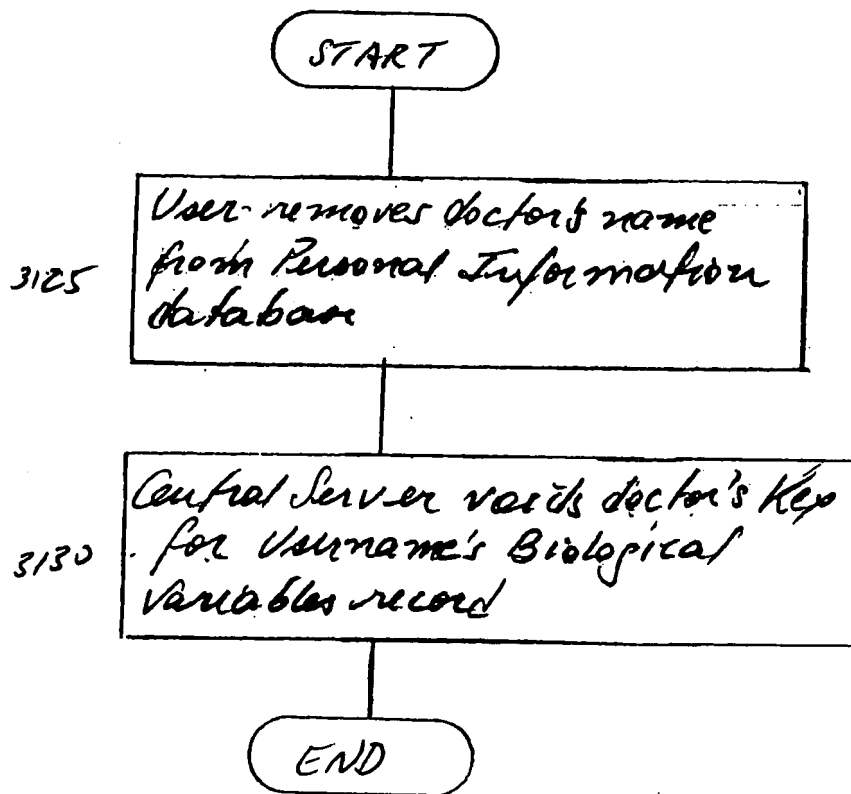 START
User removes doctor's name
3125 from Personal Information
database
Central Server voids doctor's Key
3130 for Username's Biological
Variables record
END